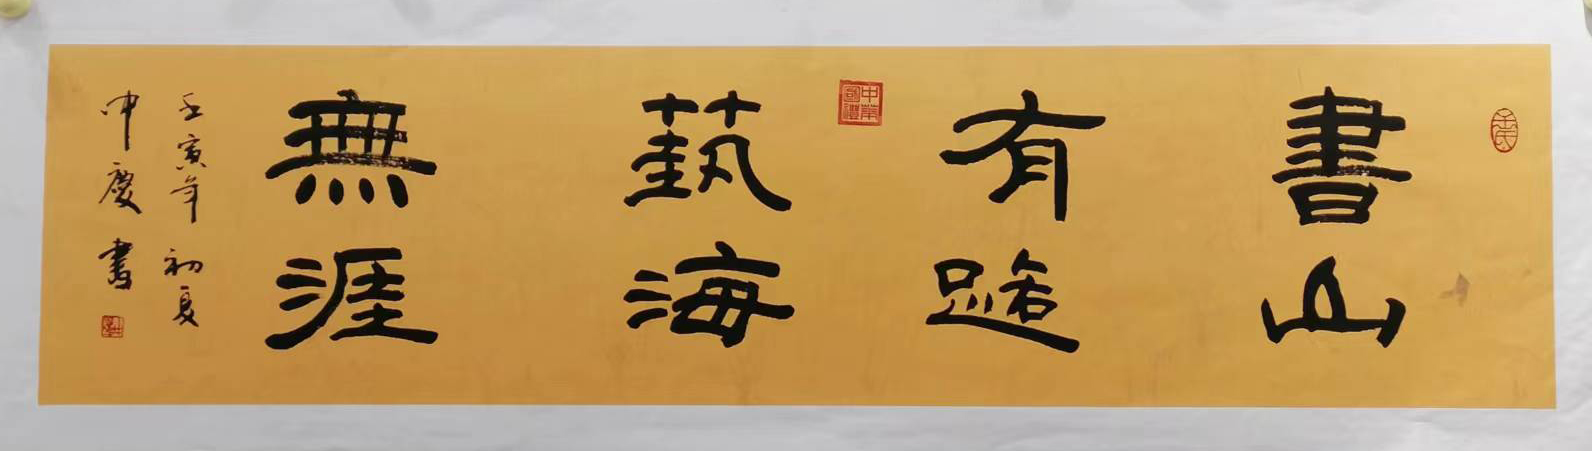 書山
有路
藝海
無涯
壬寅年初夏
中慶書
中華國禮